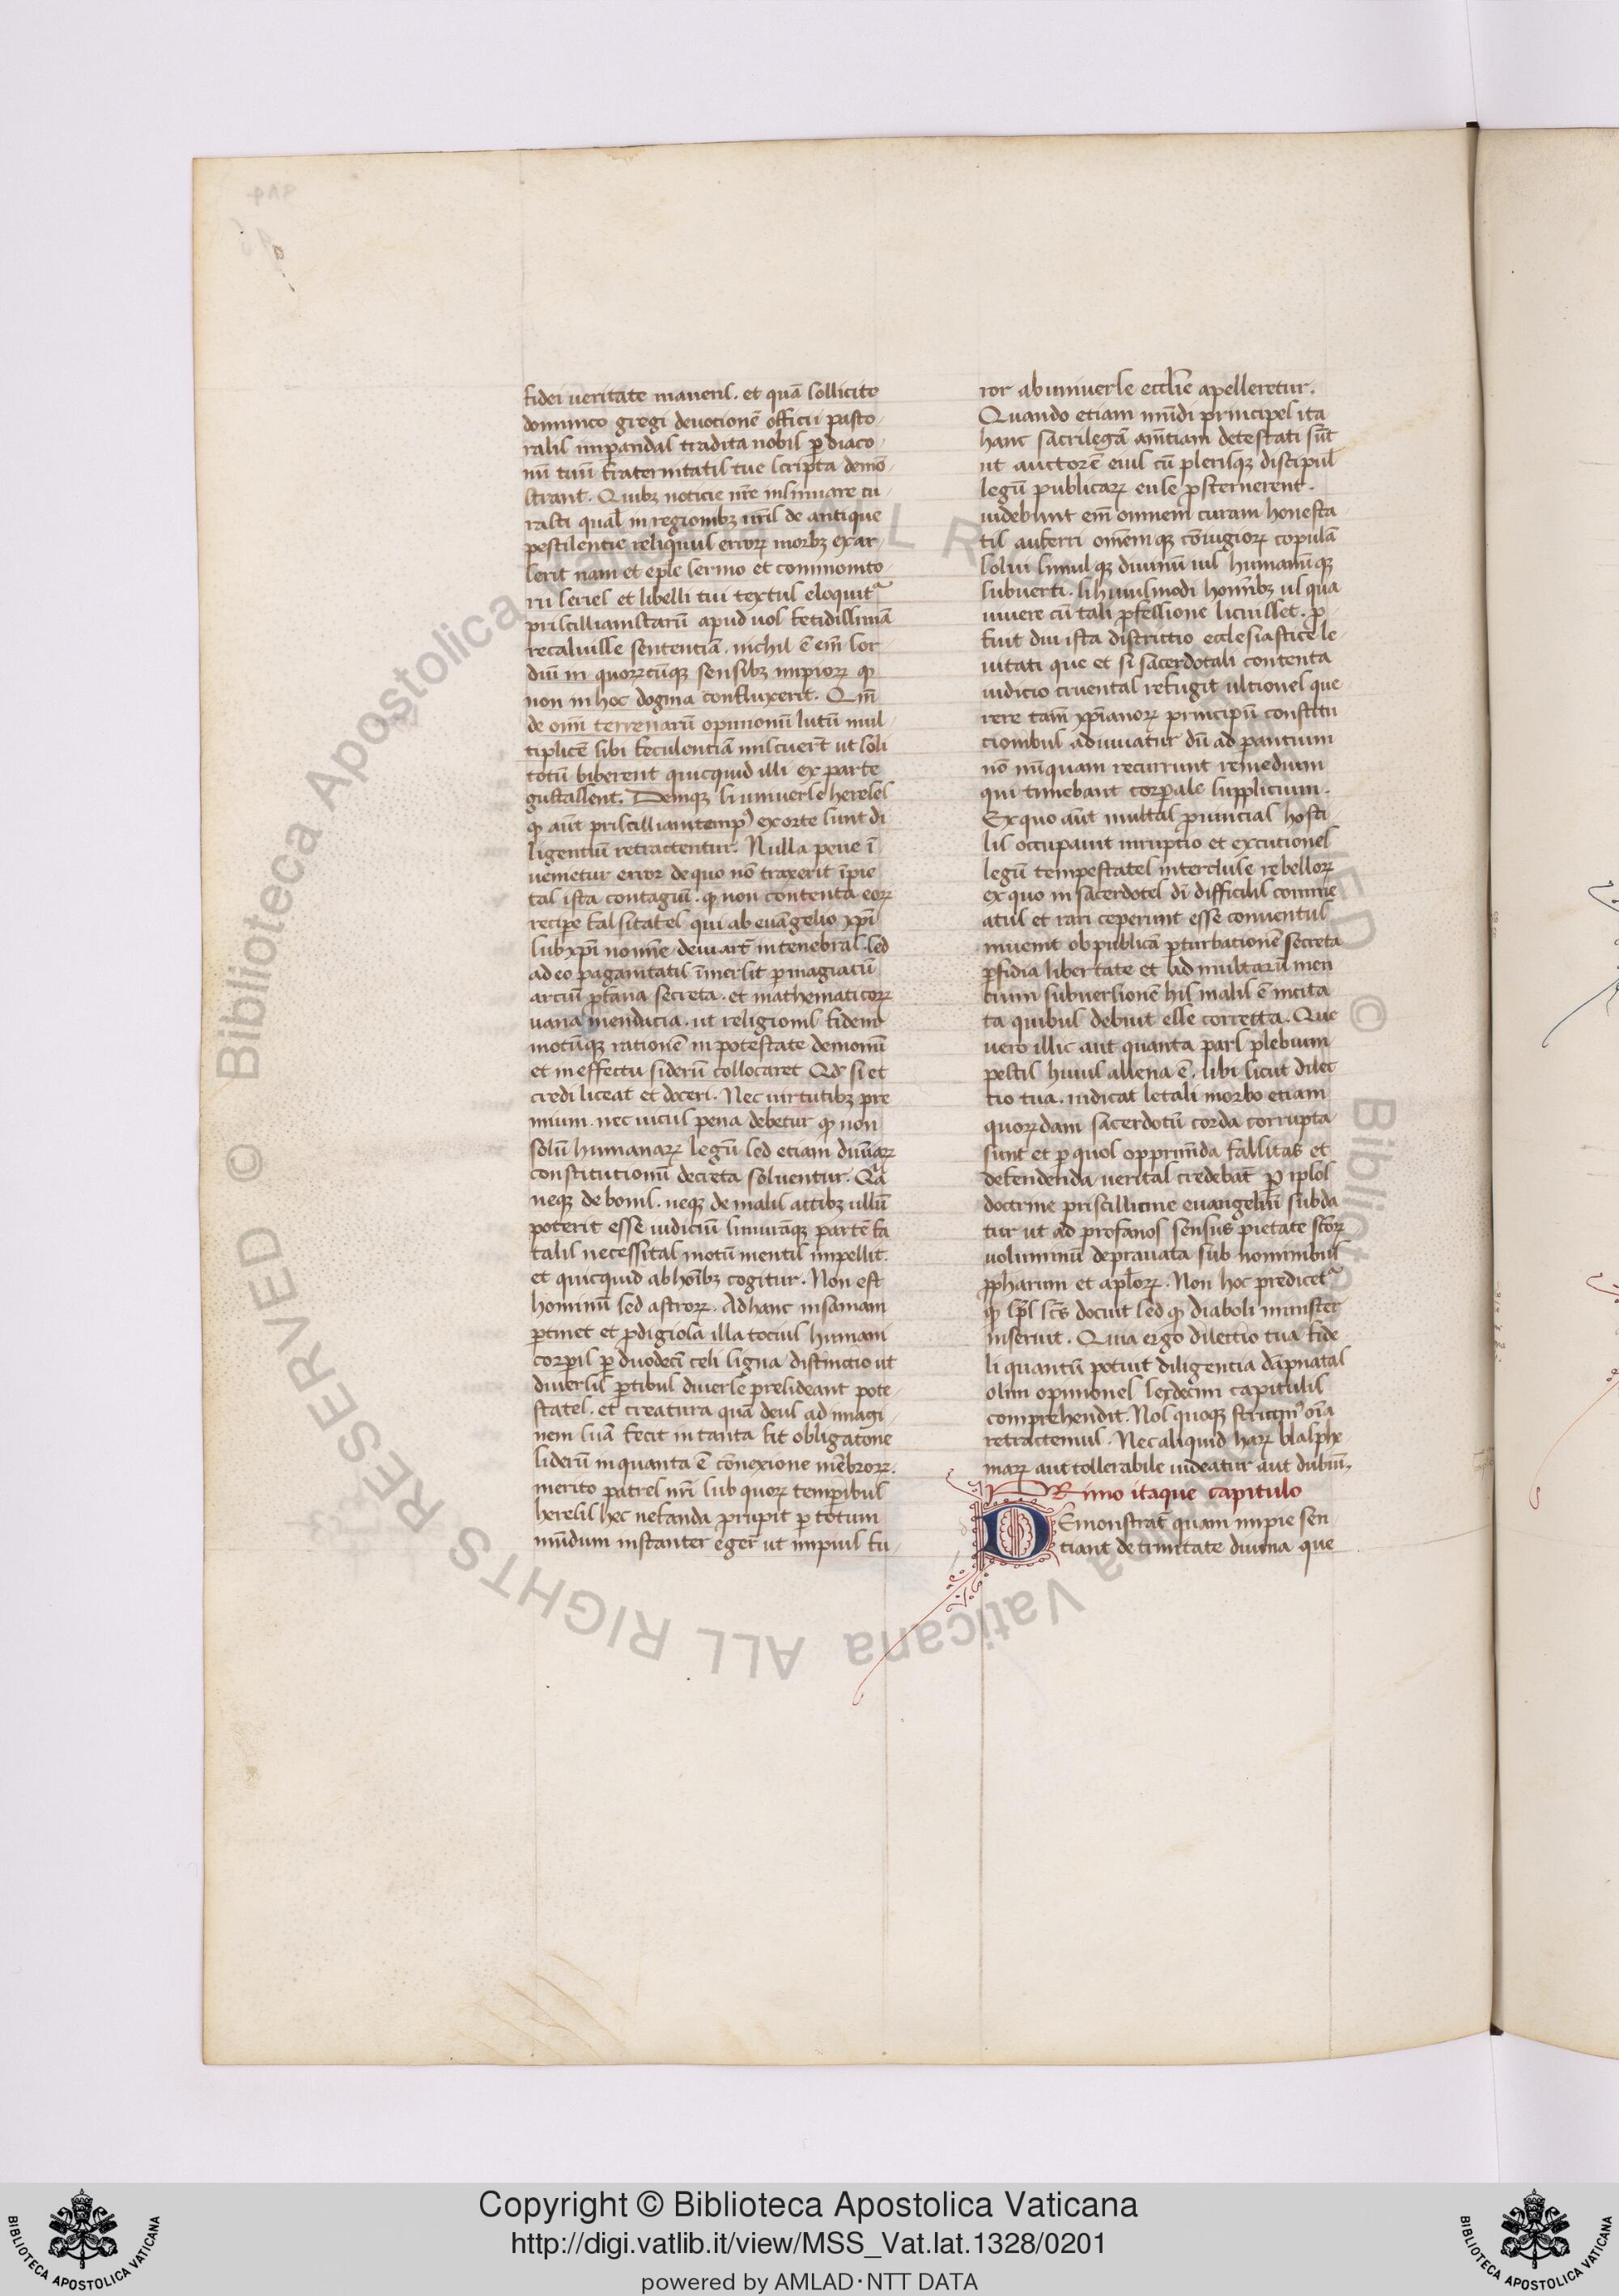 fidei veritate moueris. et quā sollicite
dominico gregi deuotionē officii pasto-
ralis impendas tradita nobis p diaco-
nū tuū fraternitatis tue scripta demō-
strant. Quibꝫ noticie nr̄e insinuare cu-
rasti quals in regionibꝫ ur̄is de antique
pestilentie reliquiis erroꝝ morbꝫ exar-
serit nam et epl̄e sermo et commonito-
rii series et libelli tui textus eloquitᷣ
priscillianistarū apud uos fetidissimā
recaluisse sententiā. nichil ē em̄ sor-
diū in quoꝝcūqꝫ sensibꝫ impioꝝ ꝙ
non in hoc dogma confluxerit. Qm̄
de om̄i terrenarū opinionū lutū mul-
tiplicē sibi feculentiā miscuer̄t ut soli
totū biberent quicquid illi ex parte
gustassent. Deniqꝫ si uniuerse hereses
ꝙ aūt priscilliani tempꝰ exorte sunt di
ligentiū retractentur. Nulla pene ī
uenietur error de quo nō traxerit īpie
tas ista contagiū. ꝙ non contenta eoꝝ
recipe falsitates qui ab euāngelio xp̄i
sub xp̄i noīne deuiarūt in tenebras. sed
ad eo paganitatis īmersit p magicarū
arciū ꝓfana secreta. et mathematicoꝝ
uana mendacia. ut religionis fidem
motūqꝫ rationē in potestate demonū
et in effectu siderū collocaret Qd̄ si et
credi liceat et doceri. Nec uirtutibꝫ pre
mium. nec uiciis pena debetur ꝙ non
solū humanaꝝ legū sed etiam diuīaꝝ
constitutionū decreta soluentur. Qa
neqꝫ de bonis. neqꝫ de malis actibꝫ ullū
poterit esse iudiciū si in utrāqꝫ partē fa
talis necessitas motū mentis impellit.
et quicquid ab hoībꝫ cogitur. Non est
hominū sed astroꝝ. Ad hanc insaniam
ptinet et ꝓdigiosa illa tocius humani
corpis p duodeci celi signa distinctio ut
diuersis ptibus diuerse presideant pote-
states. et creatura quā deus ad imagi-
nem suā fecit in tanta sit obligatione
siderū in quanta ē conexione mēbroꝝ.
merito patres nr̄i sub quoꝝ temporibus
heresis hec nefanda prupit p totum
mūdum instanter egerūt ut impius fu-
ror ab uniuerse eccl̄ie apelleretur.
Quando etiam mūdi principes ita
hanc sacrilegā amētiam detestati sūt
ut auctorē eius cū plerisqꝫ discipul̄
legū publicaꝝ ense ꝓsternerent.
uidebant em̄ omnem curam honesta
tis auferri omēmqꝫ coniugioꝝ copulā
solui simul qꝫ diuinū ius humanūqꝫ
subuerti. si huiusmodi hoīnibꝫ usqua
uiuere cū tali ꝓfessione licuisset. ꝓ-
fuit diu ista districtio ecclesiastice le-
nitati que et si sacerdotali contenta
iudicio cruentas refugit ultiones que
rere tamē xp̄ianoꝝ principū constitu
cionibus adiuuatur dū ad spantium
nō nūquam recurrunt remedium
qui timebant corporale supplicium.
Ex quo aūt multas ꝓuincias hosti
lis occupauit irruptio et excutiones
legū tempestates interclusē rebelloꝝ
ex quo in sacerdotes di difficiles comme
atus et rari ceperunt esse conuentus
inuenit ob publicā pturbationē secreta
pfidia libertate et ad multarū men
tium subuersionē his malis ē incita
ta quibus debuit esse correcta. Que
uero illic aut quanta pars plebium
pestis huius aliena ē. ubi sicut dilec
tio tua. indicat letali morbo etiam
quoꝝdam sacerdotū corda corrupta
sunt et p quos opprimēda falsitas et
defendenda ueritas credebat̄ p ipsos
doctrine priscilliane euangeliū subda
tur ut ad profanos sensus pietate sc̄oꝝ
uoluminū deprauata sub nominibus
ꝓpharum et apl̄oꝝ. Non hoc predicetᷣ
ꝙ sp̄s sc̄s docuit sed ꝙ diaboli minister
inseruit. Quia ergo dilectio tua fide
li quantū potuit diligencia dāpnatas
olim opiniones sexdecim capitulis
comprehendit. Nos quoqꝫ strictimꝰ oīa
retractemus. Nec aliquid haꝝ blasphe
miaꝝ aut tollerabile uideatur aut dubiū.
PRimo itaque capitulo
DEmonstrat̄ quam impie sen
tiant de trinitate diuina que
Copyright © Biblioteca Apostolica Vaticana
http://digi.vatlib.it/view/MSS_Vat.lat.1328/0201
powered by AMLAD·NTT DATA
BIBLIOTECA APOSTOLICA VATICANA
BIBLIOTECA APOSTOLICA VATICANA
© Biblioteca Apostolica Vaticana ALL RIGHTS RESERVED © Biblioteca Apostolica Vaticana ALL RIGHTS RESERVED